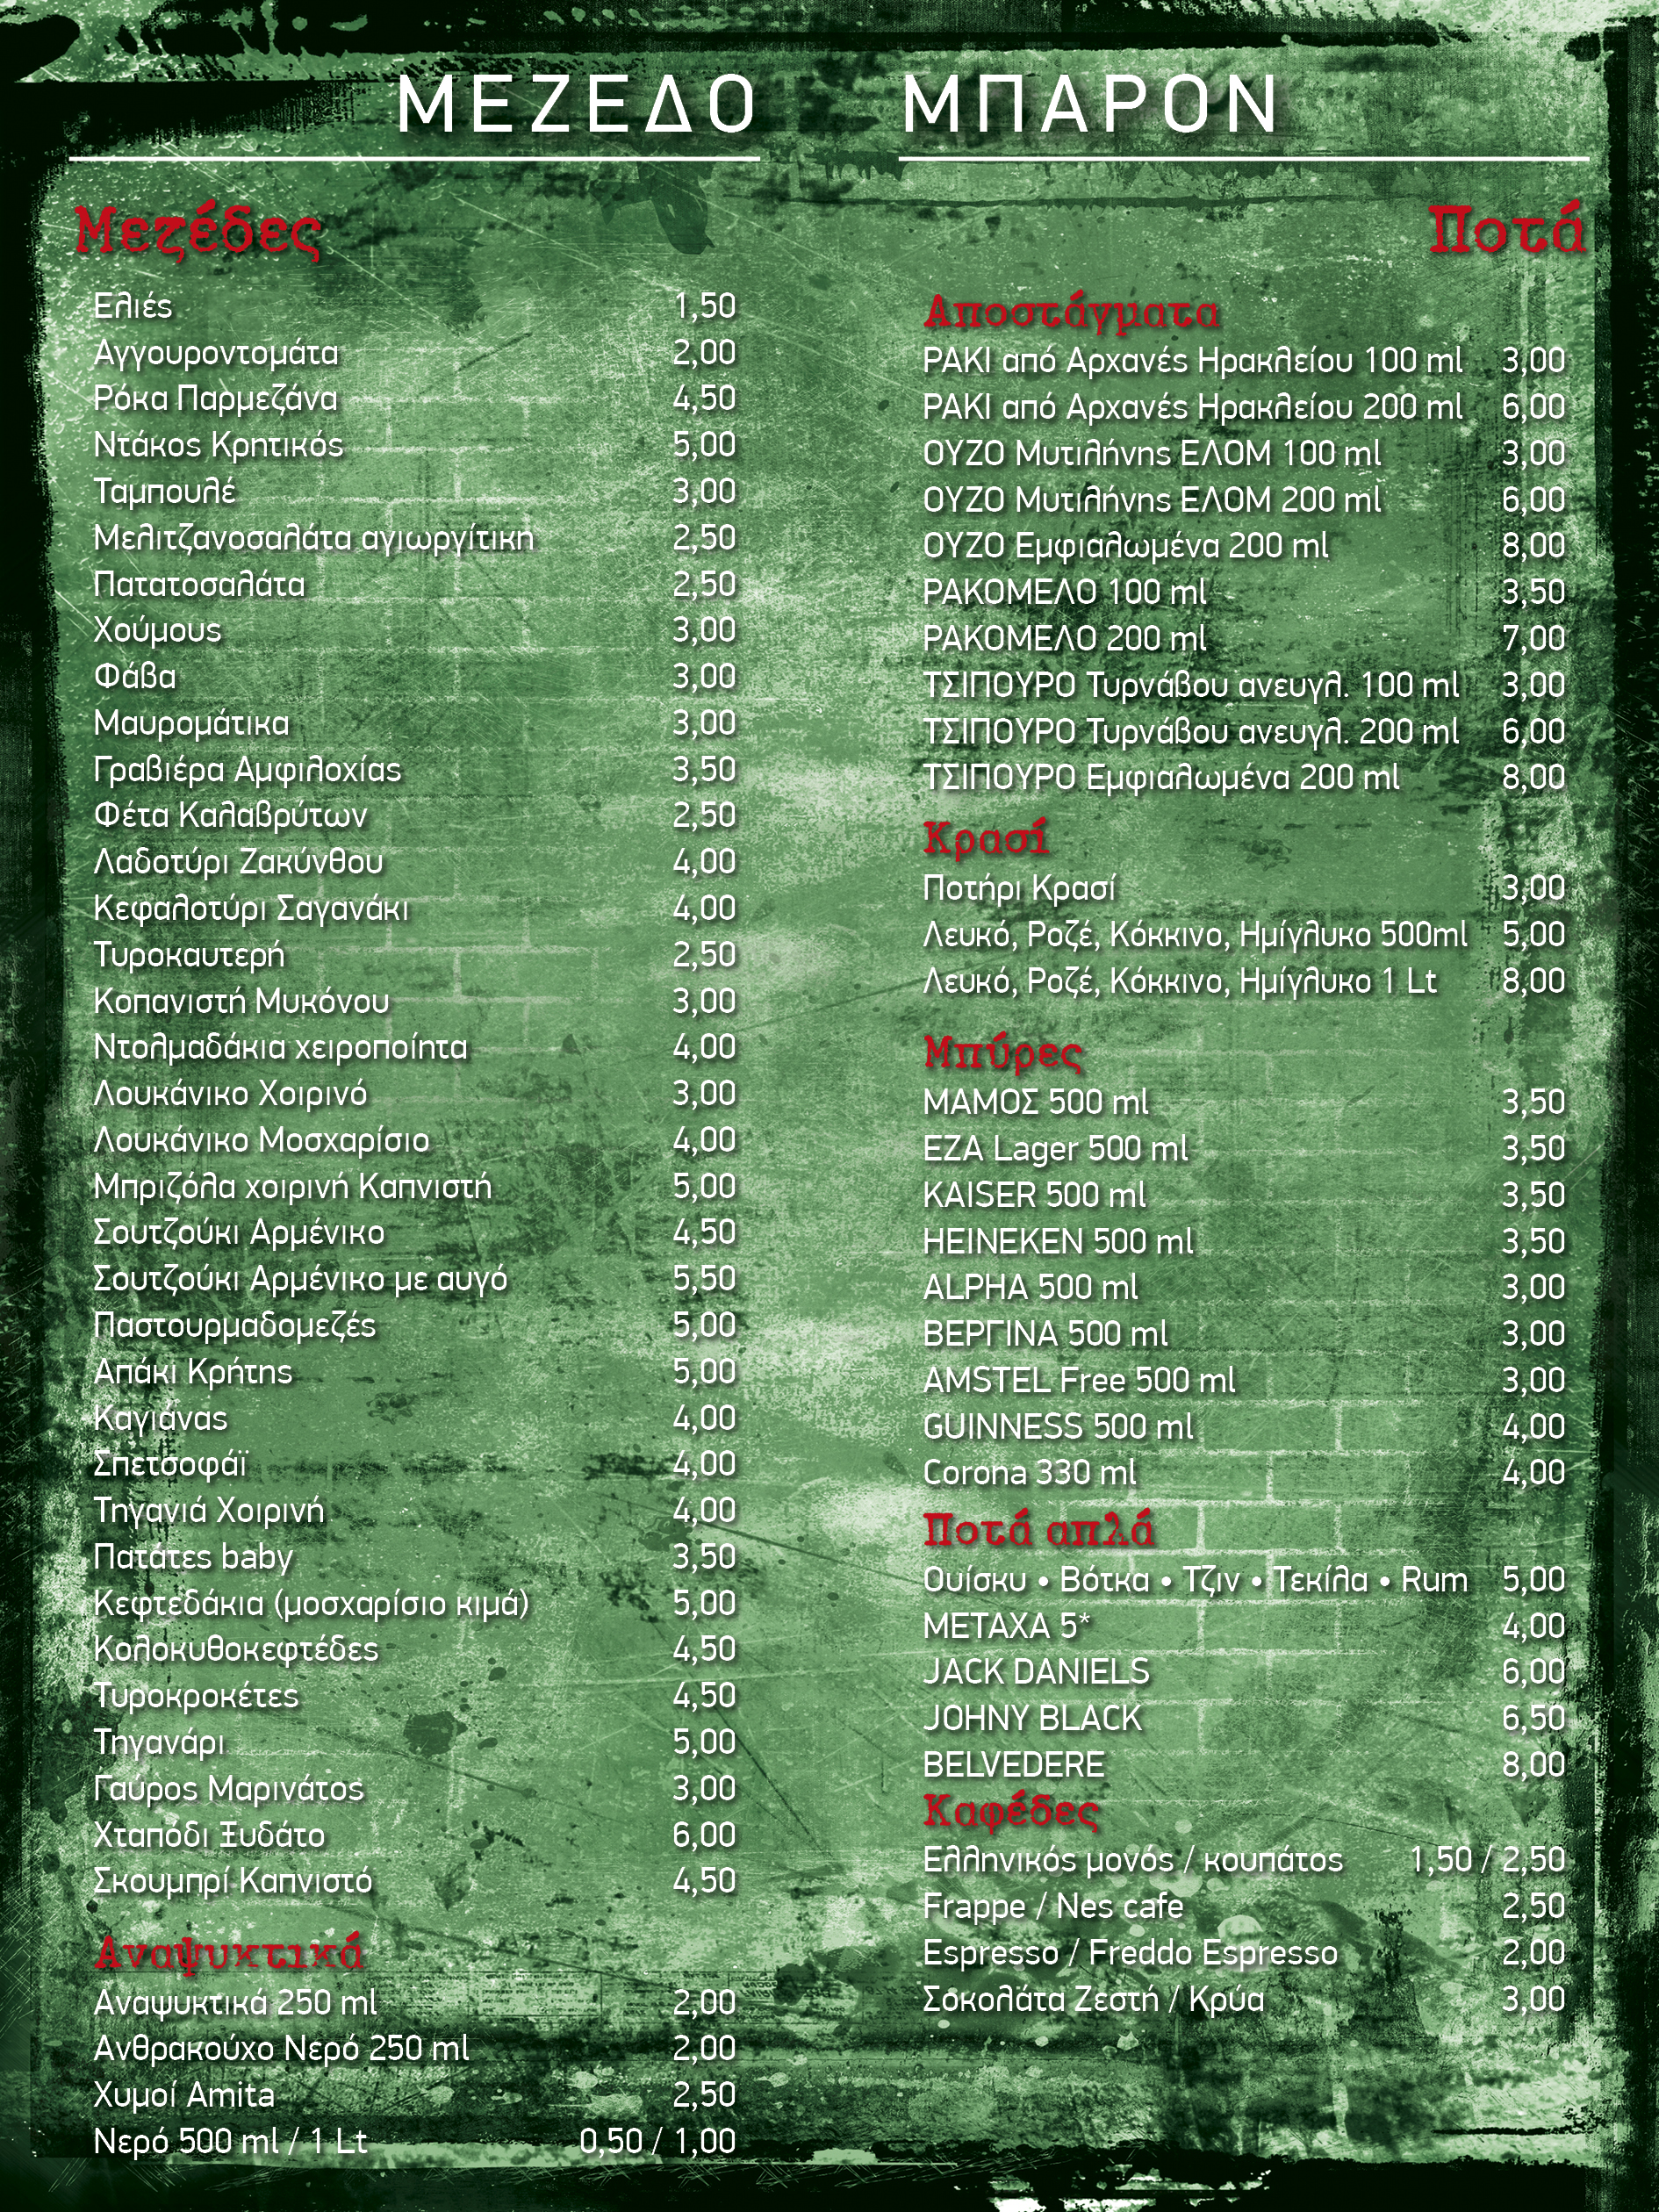 ΜΕΖΕΔΟ ΜΠΑΡΟΝ
Μεζέδες
Ελιές 1,50
Αγγουροντομάτα 2,00
Ρόκα Παρμεζάνα 4,50
Ντάκος Κρητικός 5,00
Ταμπουλέ 3,00
Μελιτζανοσαλάτα αγιωργίτικη 2,50
Πατατοσαλάτα 2,50
Χούμους 3,00
Φάβα 3,00
Μαυρομάτικα 3,00
Γραβιέρα Αμφιλοχίας 3,50
Φέτα Καλαβρύτων 2,50
Λαδοτύρι Ζακύνθου 4,00
Κεφαλοτύρι Σαγανάκι 4,00
Τυροκαυτερή 2,50
Κοπανιστή Μυκόνου 3,00
Ντολμαδάκια χειροποίητα 4,00
Λουκάνικο Χοιρινό 3,00
Λουκάνικο Μοσχαρίσιο 4,00
Μπριζόλα χοιρινή Καπνιστή 5,00
Σουτζούκι Αρμένικο 4,50
Σουτζούκι Αρμένικο με αυγό 5,50
Παστουρμαδομεζές 5,00
Απάκι Κρήτης 5,00
Καγιάνας 4,00
Σπετσοφάϊ 4,00
Τηγανιά Χοιρινή 4,00
Πατάτες baby 3,50
Κεφτεδάκια (μοσχαρίσιο κιμά) 5,00
Κολοκυθοκεφτέδες 4,50
Τυροκροκέτες 4,50
Τηγανάρι 5,00
Γαύρος Μαρινάτος 3,00
Χταπόδι Ξυδάτο 6,00
Σκουμπρί Καπνιστό 4,50
Αναψυκτικά
Αναψυκτικά 250 ml 2,00
Ανθρακούχο Νερό 250 ml 2,00
Χυμοί Amita 2,50
Νερό 500 ml / 1 Lt 0,50 / 1,00
Ποτά
Αποστάγματα
ΡΑΚΙ από Αρχανές Ηρακλείου 100 ml 3,00
ΡΑΚΙ από Αρχανές Ηρακλείου 200 ml 6,00
ΟΥΖΟ Μυτιλήνης ΕΛΟΜ 100 ml 3,00
ΟΥΖΟ Μυτιλήνης ΕΛΟΜ 200 ml 6,00
ΟΥΖΟ Εμφιαλωμένα 200 ml 8,00
ΡΑΚΟΜΕΛΟ 100 ml 3,50
ΡΑΚΟΜΕΛΟ 200 ml 7,00
ΤΣΙΠΟΥΡΟ Τυρνάβου ανευγλ. 100 ml 3,00
ΤΣΙΠΟΥΡΟ Τυρνάβου ανευγλ. 200 ml 6,00
ΤΣΙΠΟΥΡΟ Εμφιαλωμένα 200 ml 8,00
Κρασί
Ποτήρι Κρασί 3,00
Λευκό, Ροζέ, Κόκκινο, Ημίγλυκο 500ml 5,00
Λευκό, Ροζέ, Κόκκινο, Ημίγλυκο 1 Lt 8,00
Μπύρες
ΜΑΜΟΣ 500 ml 3,50
ΕΖΑ Lager 500 ml 3,50
KAISER 500 ml 3,50
HEINEKEN 500 ml 3,50
ALPHA 500 ml 3,00
ΒΕΡΓΙΝΑ 500 ml 3,00
AMSTEL Free 500 ml 3,00
GUINNESS 500 ml 4,00
Corona 330 ml 4,00
Ποτά απλά
Ουίσκυ • Βότκα • Τζιν • Τεκίλα • Rum 5,00
ΜΕΤΑΧΑ 5* 4,00
JACK DANIELS 6,00
JOHNY BLACK 6,50
BELVEDERE 8,00
Καφέδες
Ελληνικός μονός / κουπάτος 1,50 / 2,50
Frappe / Nes cafe 2,50
Espresso / Freddo Espresso 2,00
Σοκολάτα Ζεστή / Κρύα 3,00